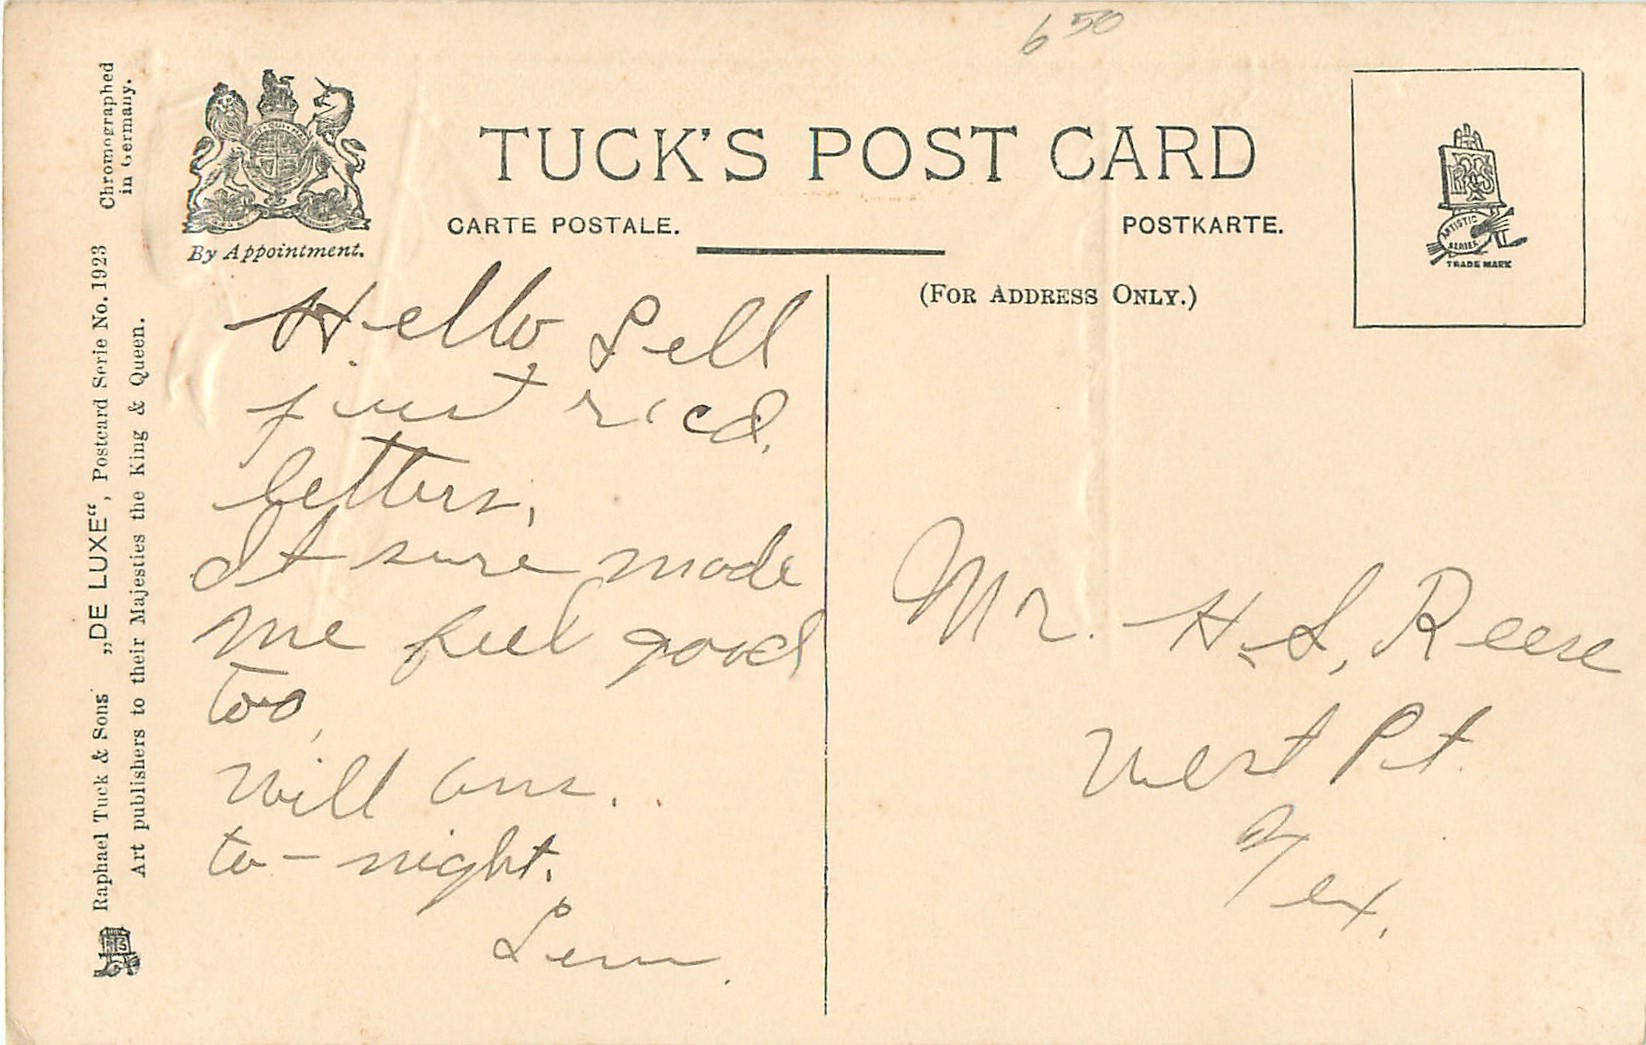 650
TUCK'S POST CARD
CARTE POSTALE.
POSTKARTE.
(FOR ADDRESS ONLY.)
By Appointment.
ARTISTIC
SERIES
TRADE MARK
Chromographed
in Germany.
Raphael Tuck & Sons' „DE LUXE“, Postcard Serie No. 1923
Art publishers to their Majesties the King & Queen.
Hello Sell
just ricd.
letters,
It sure made
me feel good
too,
will ans.
to-night.
Lem.
Mr. H. S. Reese
West Pt.
Tex.